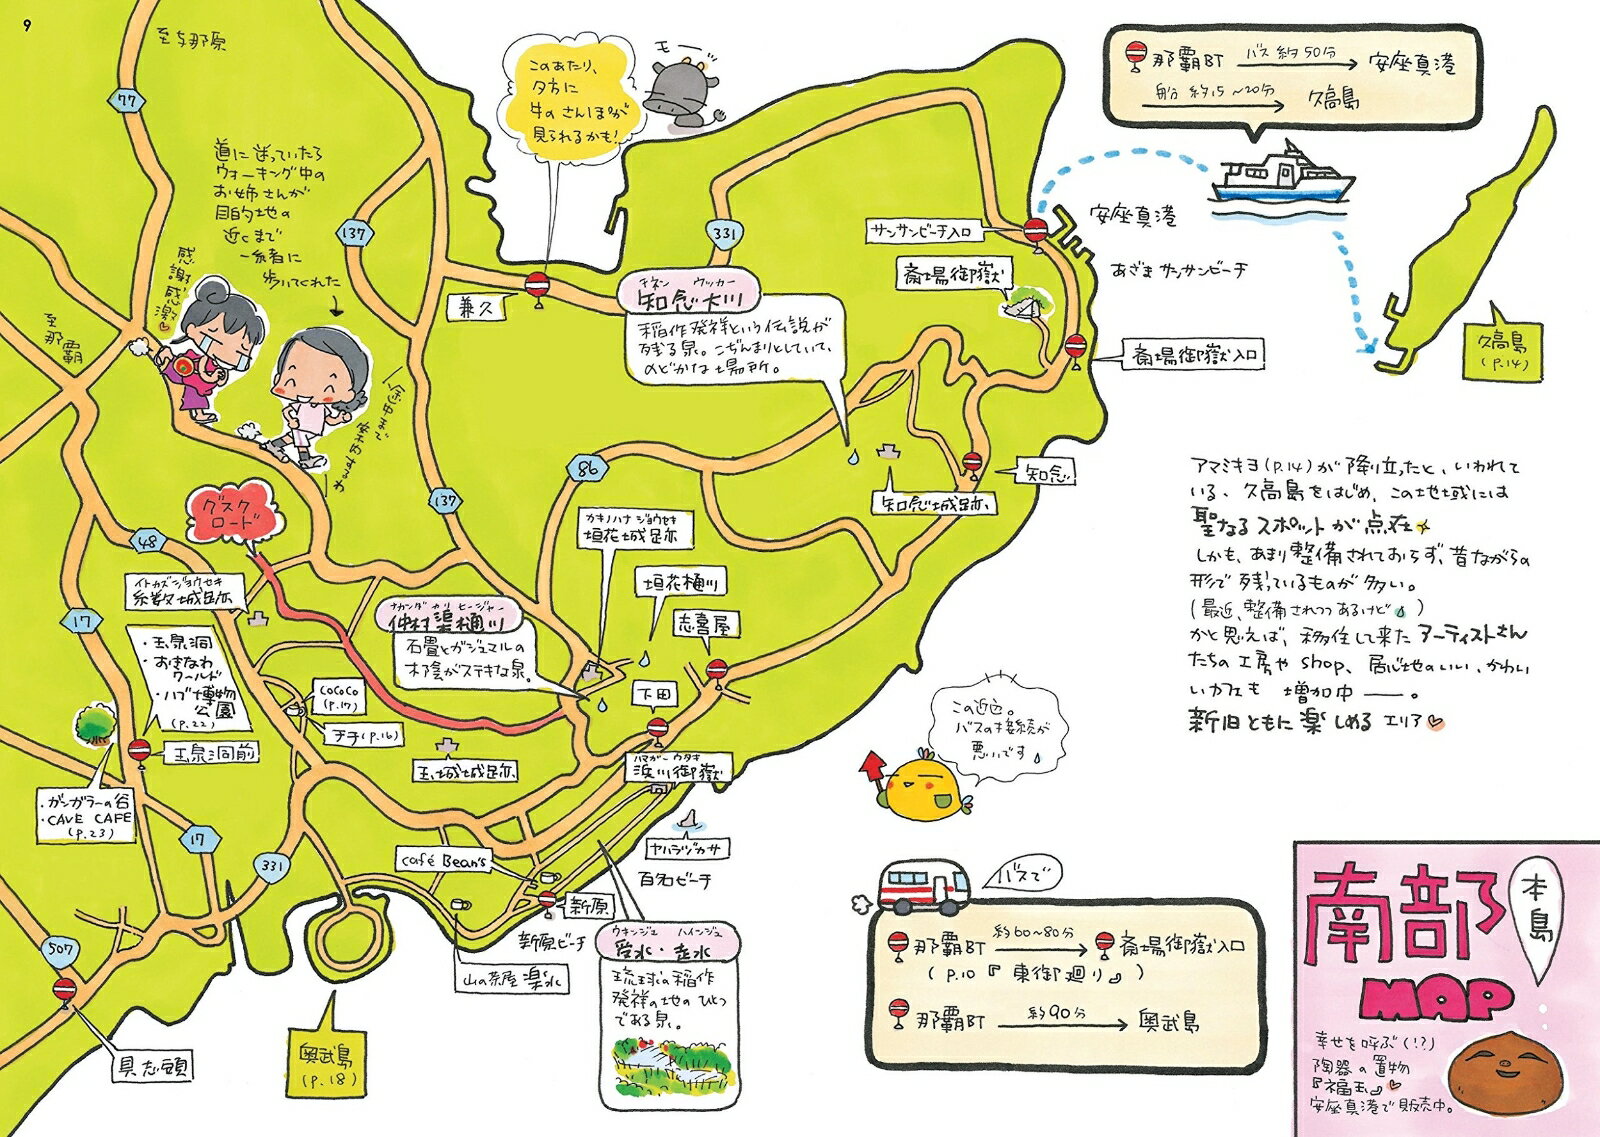 9
至与那原
77
道に迷っていたら
ウォーキング中の
お姉さんが
目的地の
近くまで
一緒に
歩いてくれた
感謝感激
至那覇
途中まで
案内するわ
137
このあたり、
夕方に
牛のさんぽが
見られるかも!
モーッ
兼久
331
チネン ウッカー
知念大川
稲作発祥という伝説が
残る泉。こぢんまりとしていて、
のどかな場所。
サンサンビーチ入口
斎場御嶽
斎場御嶽入口
安座真港
あざまサンサンビーチ
那覇BT バス 約50分 安座真港
船 約15~20分 久高島
久高島
(P.14)
知念
知念城跡
86
137
グスク
ロード
48
イトカズジョウセキ
糸数城跡
17
・玉泉洞
・おきなわ
ワールド
・ハブ博物
公園
(P.22)
玉泉洞前
・ガンガラーの谷
・CAVE CAFE
(P.23)
カキノハナジョウセキ
垣花城跡
垣花樋川
志喜屋
ナカンダカリヒージャー
仲村渠樋川
石畳とガジュマルの
木陰がステキな泉。
下田
CoCoCo
(P.17)
チチ(P.16)
玉城城跡
ハマガーウタキ
浜川御嶽
ヤハラヅカサ
百名ビーチ
café Bean's
新原
新原ビーチ
山の茶屋 楽水
17
331
507
具志頭
奥武島
(P.18)
ウキンジュ ハインジュ
受水・走水
琉球の稲作
発祥の地のひとつ
である泉。
アマミキヨ(P.14)が降り立ったと、いわれて
いる、久高島をはじめ、この地域には
聖なるスポットが点在
しかも、あまり整備されておらず、昔ながらの
形で残っているものが多い。
(最近、整備されつつあるけど)
かと思えば、移住して来たアーティストさん
たちの工房やshop、居心地のいい、かわい
いカフェも 増加中——。
新旧ともに楽しめるエリア
この近辺。
バスの接続が
悪いです
バスで
那覇BT 約60~80分 斎場御嶽入口
(P.10『東御廻り』)
那覇BT 約90分 奥武島
本島
南部
MAP
幸せを呼ぶ(!?)
陶器の置物
『福玉』
安座真港で販売中。